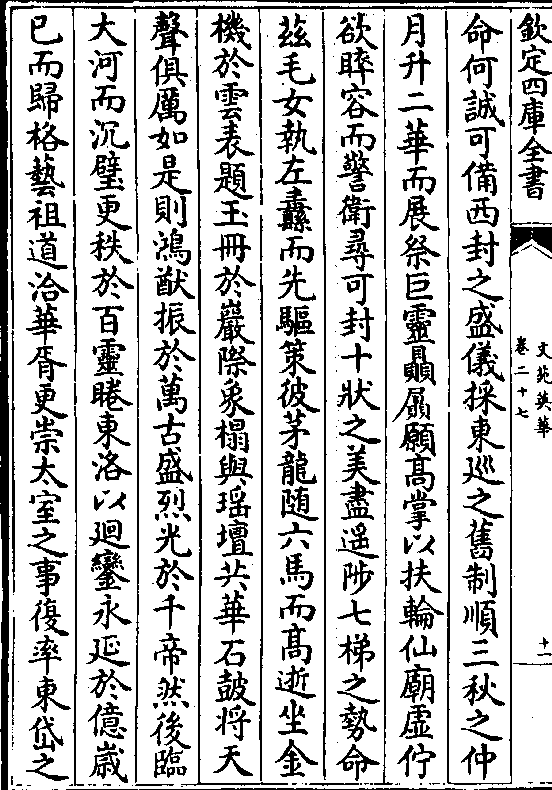 欽定四庫全書
文苑英華
卷二十七
十一
命何誠可備西封之盛儀採東巡之舊制順三秋之仲
月升二華而展祭巨靈贔屭願髙掌以扶輪仙廟虛佇
欲睟容而警衛尋可封十狀之美盡遥陟七梯之勢命
兹毛女執左纛而先驅策彼茅龍隨六馬而髙逝坐金
機於雲表題玉冊於巖際象榻與瑶壇共華石鼓將天
聲俱厲如是則鴻猷振於萬古盛烈光於千帝然後臨
大河而沉璧更秩於百靈睠東洛以廻鑾永延於億嵗
已而歸格藝祖道洽華胥更崇太室之事復率東岱之